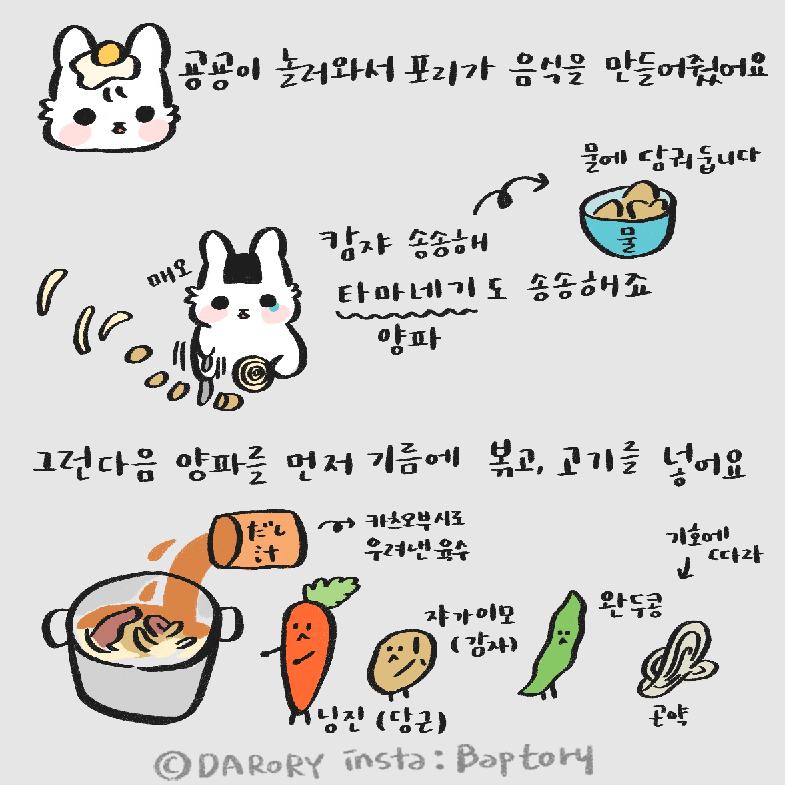 콩콩이 놀러와서 포리가 음식을 만들어줬어요
물에 담궈둡니다
물
캄쟈 송송해
매오
타마네기도 송송해죠
양파
그런다음 양파를 먼저 기름에 볶고, 고기를 넣어요
だし
汁
카츠오부시로
우려낸 육수
기호에
따라
쟈가이모
(감자)
완두콩
닝진 (당근)
곤약
©DARORY insta: Baptory